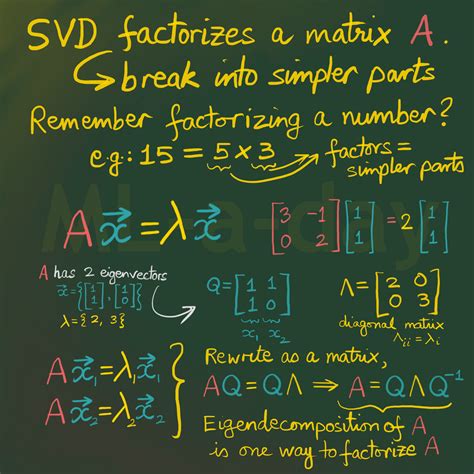 SVD factorizes a matrix A.
↳ break into simpler parts
Remember factorizing a number?
e.g.: 15 = 5 × 3 → factors = simpler parts
ML-a-day
A x⃗ = λ x⃗
[3 -1; 0 2] [1; 1] = 2 [1; 1]
A has 2 eigenvectors
x⃗ = {[1; 1], [1; 0]}
λ = {2, 3}
Q = [1 1; 1 0]
x₁ x₂
Λ = [2 0; 0 3]
diagonal matrix
Λᵢᵢ = λᵢ
A x⃗₁ = λ₁ x⃗₁
A x⃗₂ = λ₂ x⃗₂
Rewrite as a matrix,
AQ = QΛ ⇒ A = QΛQ⁻¹
Eigendecomposition of A
is one way to factorize A